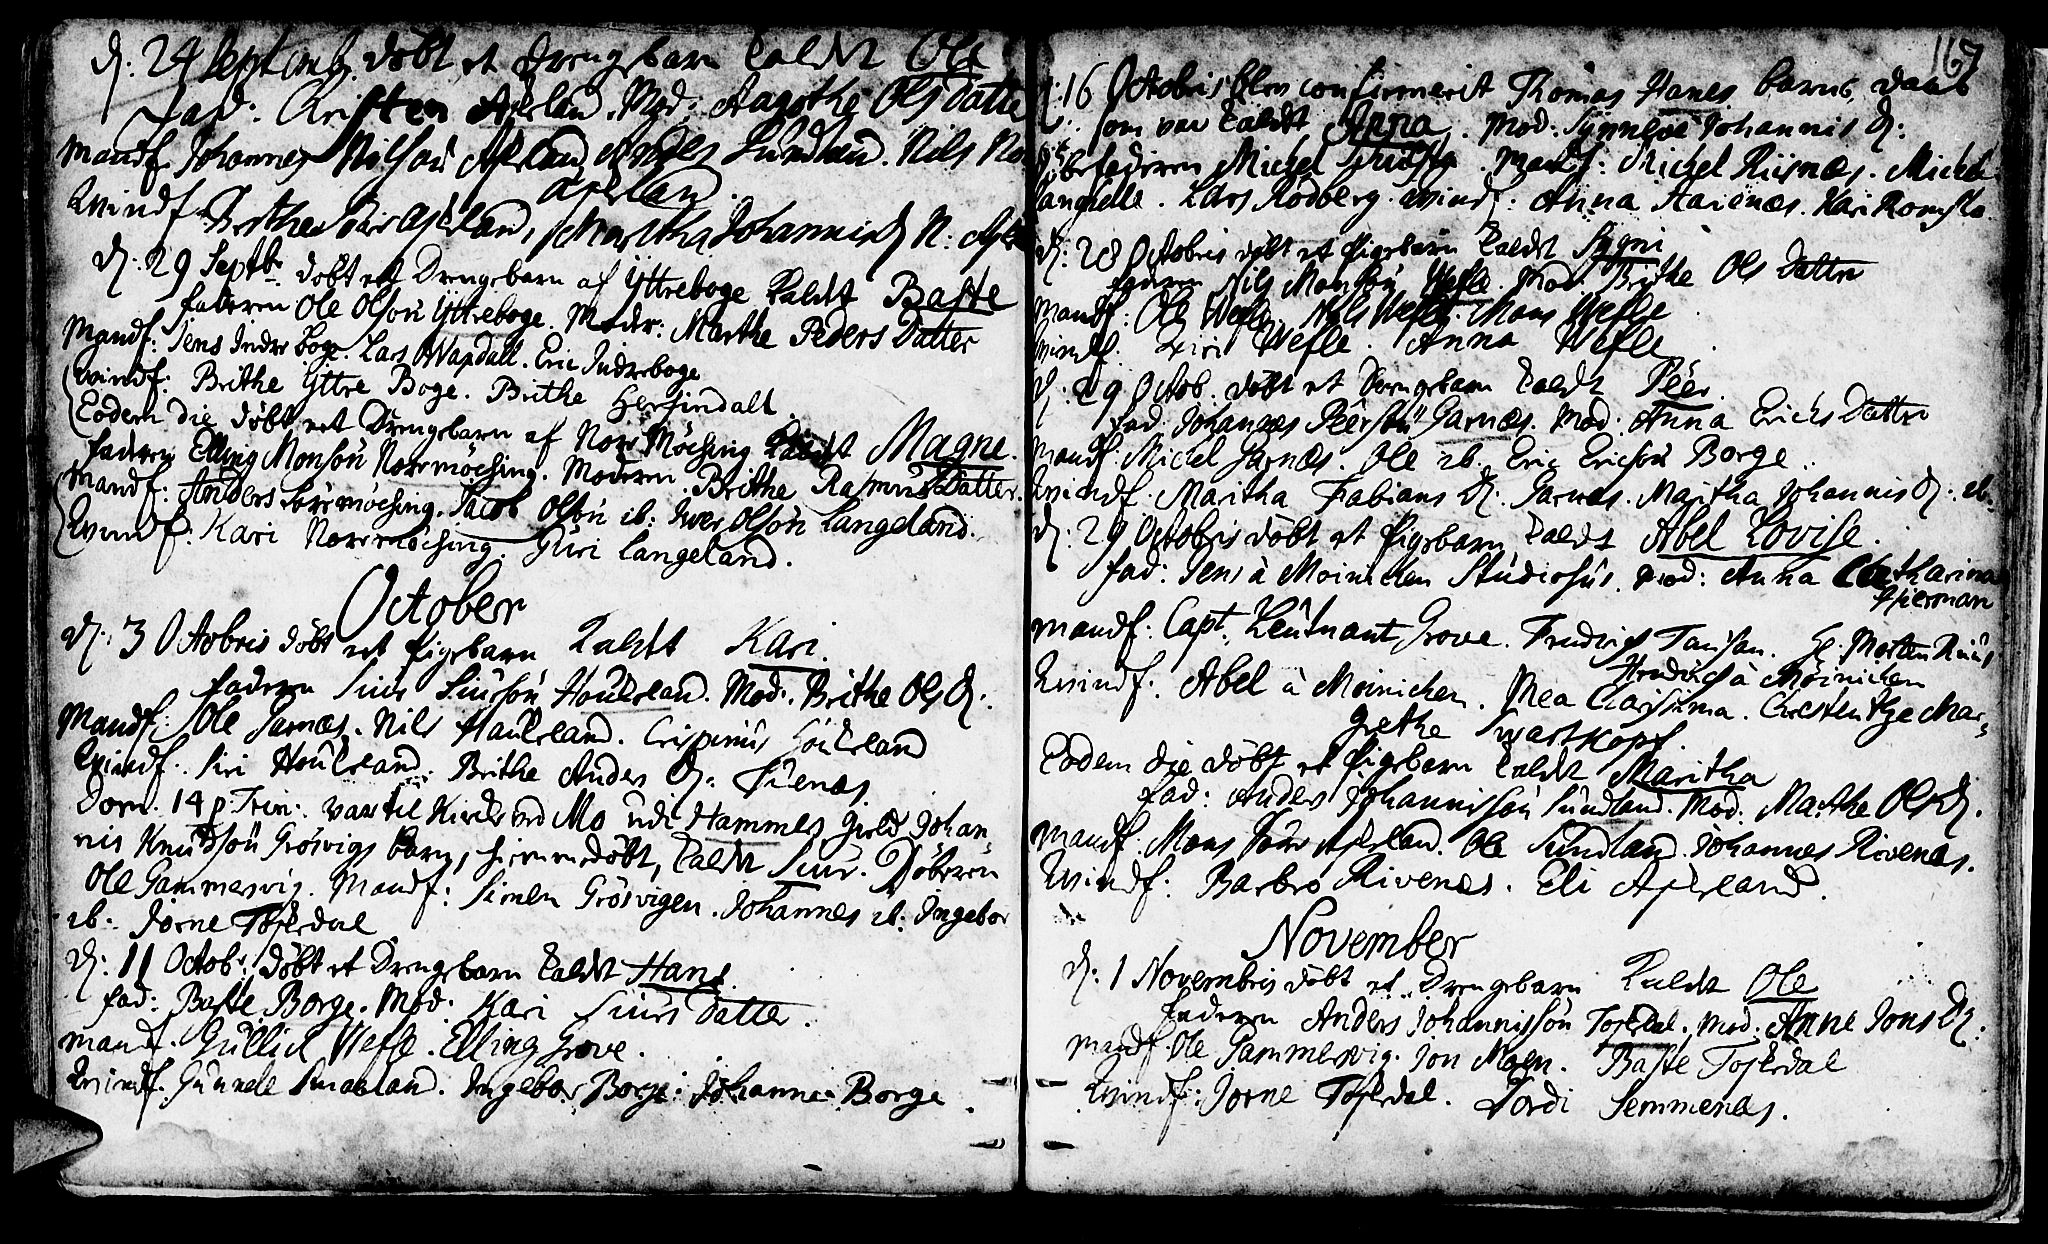 d: 24 Septemb. døbt et Drengebarn kaldt Ole
Fad: Christen Apeland. Mod: Aagothe Ols Datte
Mandf. Johannes Nilsøn Apeland Anders Sundland. Nils No
Apeland.
Qvindf. Brithe Apeland, Martha Johannis D. N: Apel
d: 29 Septb. døbt ett Drengebarn af Yttreboge kaldt Baste
faderen Ole Olsøn Yttreboge. Moder: Marthe Peders Datter
Mandf: Jens Indre boge. Lars Wapdall. Eric Indreboge
Qvindf: Brithe Yttre Boge. Brithe Hersindall.
Eodem die døbt ett Drengebarn af Norr Møching kaldt Magne.
faderen Elling Monsøn Norrmøching. Moderen Brithe Rasmus Datter.
Mandf: Anders Sørremøching. Jacob Olsøn ib: Iver Olsøn Langeland.
Qvindf: Kari Norrmøching. Guri Langeland.
October
d: 3 Octobris døbt ett Pigebarn kaldt Kari.
faderen Siur Siursøn Houkeland. Mod. Brithe Ols D:
Mandf: Ole Garnæs. Nils Haukeland. Crispinus Houkeland
Qvindf. Siri Houkeland. Brithe Anders D: Tuenæs
Dom. 14 p. Trin: var til Kircke ved Mo udi Hammers gield Johan-
nis Knudsøn Grøsvigs barn, hiemmedøbt, kaldt Siur. Døberen
Ole Gammersvig. Mandf: Simen Grøsvigen. Johannes ib: Ingebor
ib: Jorne Toskedal
d: 11 Octob: døbt et Drengebarn kaldt Hans.
fad: Baste Borge. Mod. Kari Siurs Datter.
Mandf. Gullich Wefle. Elling Grove.
Qvindf. Gunnele Smaaland. Ingebor Borge. Johanne Borge.
167
d: 16 Octobris blev confirmerit Thomas Hanes barns daab
som var kaldt Anna. Mod: Synneve Johannis D:
Døbefaderen Michel. Mandf: Michel Riisnæs. Michel
Langhelle. Lars Rødberg. Qvindf: Anna Aasenæs. Kari Romslo.
d: 28 Octobris døbt et Pigebarn kaldt Sygni
faderen Nils Monsøn Wefle. Mod. Brithe Ols Datter
Mandf: Ole Wefle. Nils Wefle. Mons Wefle
Qvindf. Siri Wefle. Anna Wefle.
d. 29 Octob. døbt et Drengebarn kaldt Peer.
fad. Johannes Peersøn Garnæs. Mod: Anna Erichs Datter
Mandf: Michel Garnæs. Ole ib. Eric Ericsøn Borge.
Qvindf. Maritha Fabians D: Garnæs. Maritha Johannis D: ib.
d: 29 Octobris døbt et Pigebarn kaldt Abel Lovise.
fad: Jens à Moinichen Studiosus. Mod: Anna Catharina
Hierman
Mandf: Capt. Leutnant Grove. Fredrich Tausan. Hr. Morten Riis
Hendrich à Moinichen
Qvindf. Abel à Moinichen. Mea Charissima. Chrestentze Mar-
grethe Swartkopf.
Eodem die døbt et Pigebarn kaldt Maritha
fad: Anders Johannissøn Sundland. Mod. Marthe Ols D.
Mandf. Mons Apeland. Ole Sundland. Johannes Rivenes.
Qvindf: Barbro Rivenes. Eli Apeland.
November
d: 1 Novembris døbt et Drengebarn kaldt Ole
faderen Anders Johannissøn Toskedal. Mod. Anne Jons D:
Mandf. Ole Gammersvig. Jon Moen. Baste Toskedal
Qvindf: Jorne Toskedal. Jordi Semmenes.